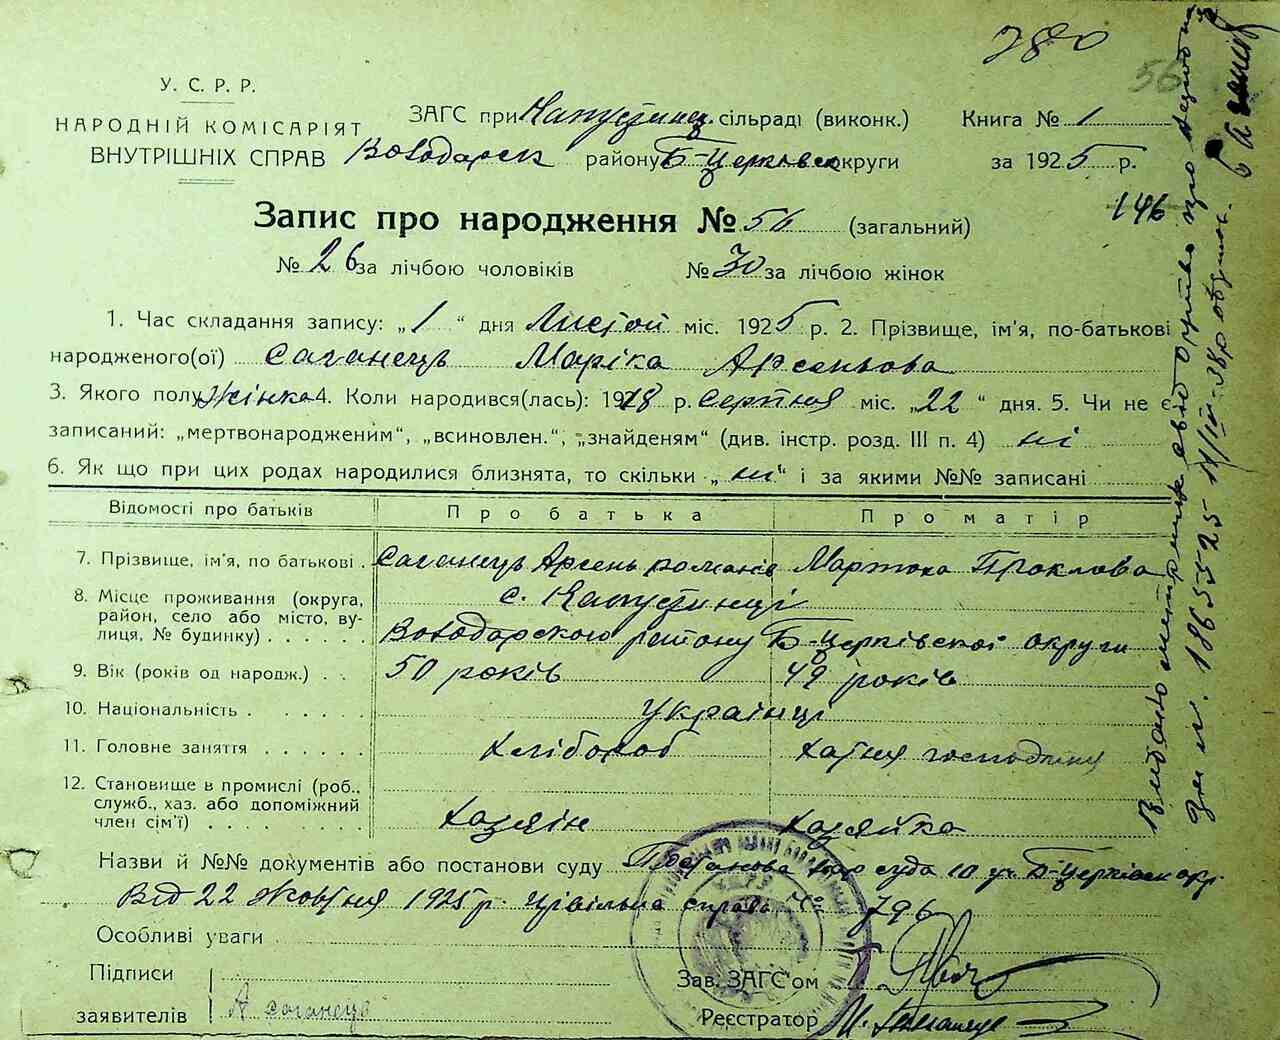 7820
56
У. С. Р. Р.
НАРОДНІЙ КОМІСАРІЯТ
ВНУТРІШНІХ СПРАВ
ЗАГС при Капустинец. сільраді (виконк.)
Володарск району Б-Церківск округи
Книга № 1
за 1925 р.
146
Запис про народження № 56 (загальний)
№ 26 за лічбою чоловіків № 30 за лічбою жінок
1. Час складання запису: „1“ дня Листоп міс. 1925 р. 2. Прізвище, ім'я, по-батькові
народженого(ої) Саганець Маріка Арсеньова
3. Якого полу Жінка 4. Коли народився(лась): 1918 р. Серпня міс. „22“ дня. 5. Чи не є
записаний: „мертвонародженим“, „всиновлен.“, „знайденям“ (див. інстр. розд. III п. 4) ні
6. Як що при цих родах народилися близнята, то скільки „ні“ і за якими №№ записані
Відомості про батьків Про батька Про матір
7. Прізвище, ім'я, по батькові . Саганець Арсень Романів Мартоха Проклова
8. Місце проживання (округа, район, село або місто, вулиця, № будинку) с. Капустинці
Володарского району Б-Церківскої округи
9. Вік (років од народж.) . . 50 років 49 років
10. Національність . Українці
11. Головне заняття хлібороб хатня господиня
12. Становище в промислі (роб., служб., хаз. або допоміжний член сім'ї) хазяїн хазяйка
Назви й №№ документів або постанови суду Постанова Нар суда 10 уч Б-Церківск окр.
Від 22 Жовтня 1925 р. цівільна справа № 796
Особливі уваги
Підписи
заявителів А Саганець
Зав. ЗАГС'ом
Реєстратор М.